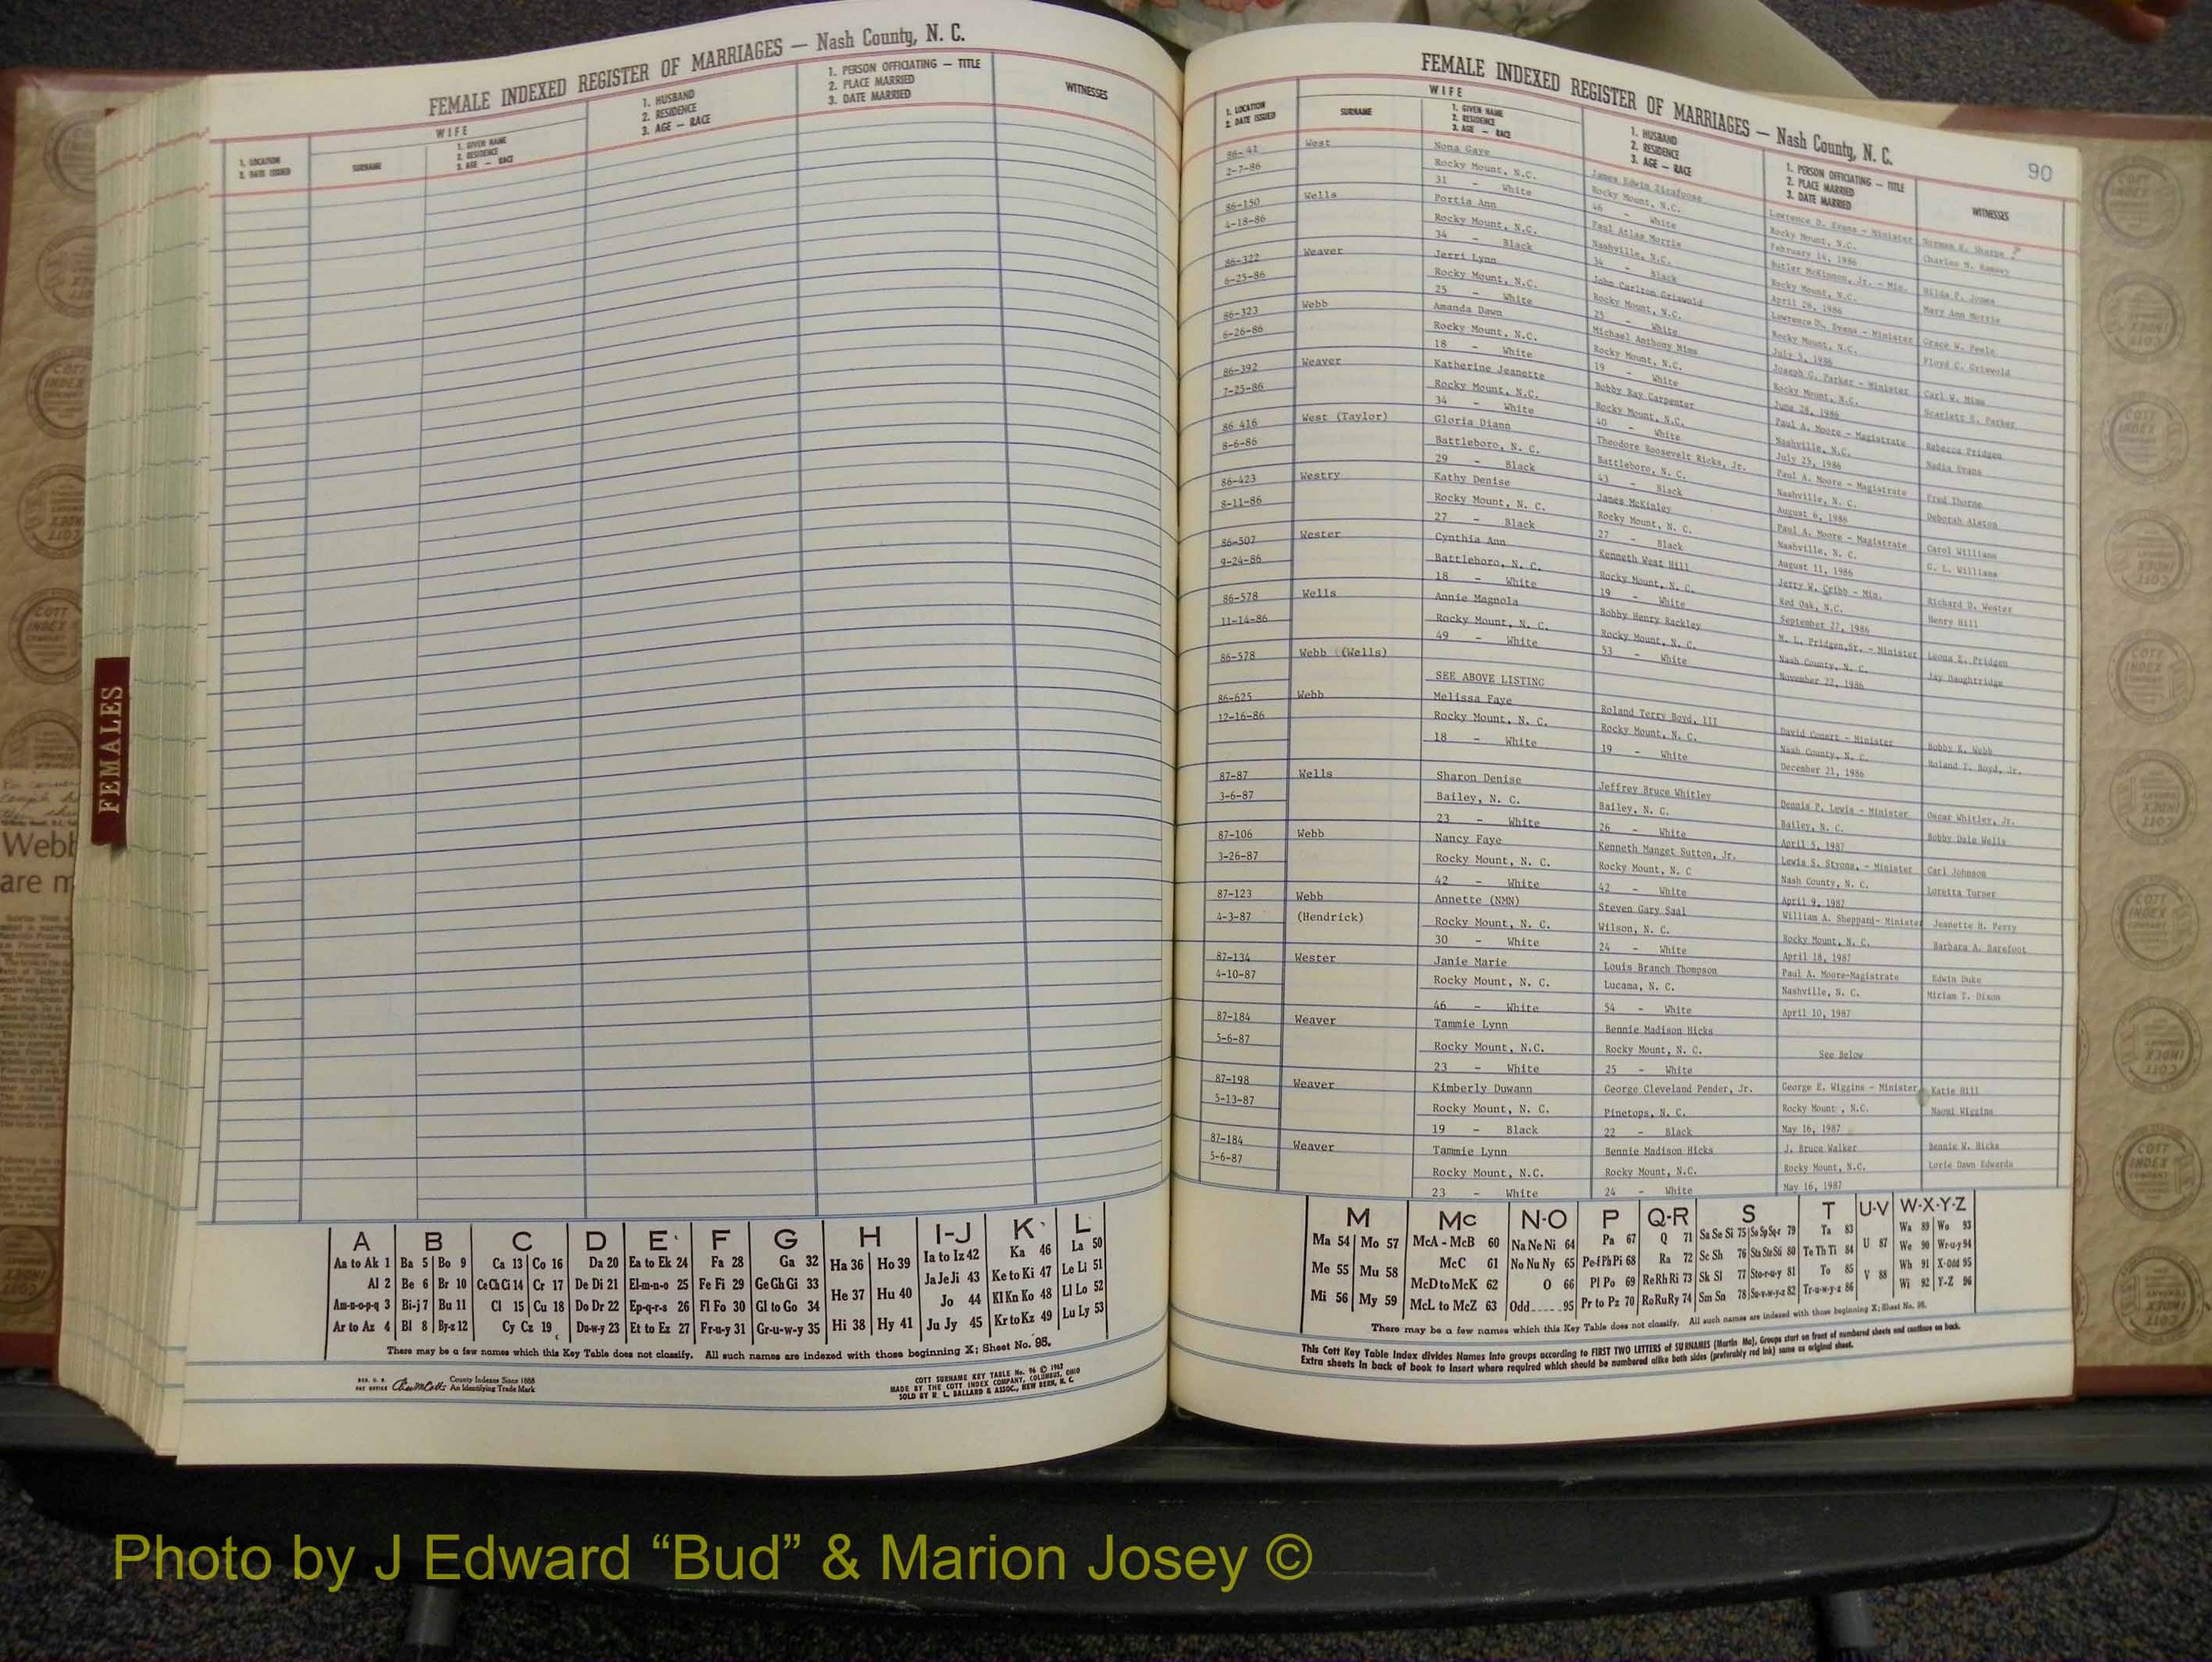 FEMALE INDEXED REGISTER OF MARRIAGES — Nash County, N. C.
1. LOCATION
2. DATE ISSUED
WIFE
SURNAME
1. GIVEN NAME
2. RESIDENCE
3. AGE — RACE
1. HUSBAND
2. RESIDENCE
3. AGE — RACE
1. PERSON OFFICIATING — TITLE
2. PLACE MARRIED
3. DATE MARRIED
WITNESSES
FEMALES
Webb
are m
A B C D E F G H I-J K L
Aa to Ak 1 Ba 5 Bo 9 Ca 13 Co 16 Da 20 Ea to Ek 24 Fa 28 Ga 32 Ha 36 Ho 39 Ia to Iz 42 Ka 46 La 50
Al 2 Be 6 Br 10 Ce Ch Ci 14 Cr 17 De Di 21 El-m-n-o 25 Fe Fi 29 Ge Gh Gi 33 He 37 Hu 40 Ja Je Ji 43 Ke to Ki 47 Le Li 51
Am-n-o-p-q 3 Bi-j 7 Bu 11 Cl 15 Cu 18 Do Dr 22 Ep-q-r-s 26 Fl Fo 30 Gl to Go 34 Jo 44 Kl Kn Ko 48 Ll Lo 52
Ar to Az 4 Bl 8 By-z 12 Cy Cz 19 Du-w-y 23 Et to Ez 27 Fr-u-y 31 Gr-u-w-y 35 Hi 38 Hy 41 Ju Jy 45 Kr to Kz 49 Lu Ly 53
There may be a few names which this Key Table does not classify. All such names are indexed with those beginning X; Sheet No. 95.
County Indexes Since 1888
An Identifying Trade Mark
COTT SURNAME KEY TABLE No. 96 © 1963
MADE BY THE COTT INDEX COMPANY, COLUMBUS, OHIO
SOLD BY R. L. BALLARD & ASSOC., NEW BERN, N. C.
FEMALE INDEXED REGISTER OF MARRIAGES — Nash County, N. C.
90
1. LOCATION
2. DATE ISSUED
WIFE
SURNAME
1. GIVEN NAME
2. RESIDENCE
3. AGE — RACE
1. HUSBAND
2. RESIDENCE
3. AGE — RACE
1. PERSON OFFICIATING — TITLE
2. PLACE MARRIED
3. DATE MARRIED
WITNESSES
86-42 West Nona Gaye James Edwin Zicafoose Lawrence D. Evans - Minister Norman K. Sharpe
2-7-86 Rocky Mount, N.C. Rocky Mount, N.C. Rocky Mount, N.C. Charles N. Ramsey
31 - White 46 - White February 14, 1986
86-150 Wells Portia Ann Paul Atlas Morris Butler McKinnon, Jr. - Min. Hilda P. Jones
4-18-86 Rocky Mount, N.C. Nashville, N.C. Rocky Mount, N.C. Mary Ann Morris
34 - Black 34 - Black April 26, 1986
86-322 Weaver Jerri Lynn John Carlton Griswold Lawrence D. Evans - Minister Grace W. Peele
6-25-86 Rocky Mount, N.C. Rocky Mount, N.C. Rocky Mount, N.C. Floyd C. Griswold
25 - White 25 - White July 5, 1986
86-323 Webb Amanda Dawn Michael Anthony Mims Joseph G. Parker - Minister Carl W. Mims
6-26-86 Rocky Mount, N.C. Rocky Mount, N.C. Rocky Mount, N.C. Scarlett E. Parker
18 - White 19 - White June 28, 1986
86-392 Weaver Katherine Jeanette Bobby Ray Carpenter Paul A. Moore - Magistrate Rebecca Pridgen
7-25-86 Rocky Mount, N.C. Rocky Mount, N.C. Nashville, N.C. Nadia Evans
34 - White 40 - White July 25, 1986
86 416 West (Taylor) Gloria Diann Theodore Roosevelt Ricks, Jr. Paul A. Moore - Magistrate Fred Thorne
8-6-86 Battleboro, N. C. Battleboro, N. C. Nashville, N. C. Deborah Alston
29 - Black 43 - Black August 6, 1986
86-423 Westry Kathy Denise James McKinley Paul A. Moore - Magistrate Carol Williams
8-11-86 Rocky Mount, N. C. Rocky Mount, N. C. Nashville, N. C. G. L. Williams
27 - Black 27 - Black August 11, 1986
86-507 Wester Cynthia Ann Kenneth West Hill Jerry W. Cribb - Min. Richard D. Wester
9-24-86 Battleboro, N. C. Rocky Mount, N. C. Red Oak, N.C. Henry Hill
18 - White 19 - White September 27, 1986
86-578 Wells Annie Magnola Bobby Henry Rackley M. L. Pridgen,Sr. - Minister Leona E. Pridgen
11-14-86 Rocky Mount, N. C. Rocky Mount, N. C. Nash County, N. C. Jay Daughtridge
49 - White 53 - White November 22, 1986
86-578 Webb (Wells)
SEE ABOVE LISTING
86-625 Webb Melissa Faye Roland Terry Boyd, III David Conert - Minister Bobby K. Webb
12-16-86 Rocky Mount, N. C. Rocky Mount, N. C. Nash County, N. C. Roland T. Boyd, Jr.
18 - White 19 - White December 21, 1986
87-87 Wells Sharon Denise Jeffrey Bruce Whitley Dennis P. Lewis - Minister Oscar Whitley, Jr.
3-6-87 Bailey, N. C. Bailey, N. C. Bailey, N. C. Bobby Dale Wells
23 - White 26 - White April 5, 1987
87-106 Webb Nancy Faye Kenneth Manget Sutton, Jr. Lewis S. Styons, - Minister Carl Johnson
3-26-87 Rocky Mount, N. C. Rocky Mount, N. C Nash County, N. C. Loretta Turner
42 - White 42 - White April 9, 1987
87-123 Webb Annette (NMN) Steven Gary Saal William A. Sheppard- Minister Jeanette H. Perry
4-3-87 (Hendrick) Rocky Mount, N. C. Wilson, N. C. Rocky Mount, N. C. Barbara A. Barefoot
30 - White 24 - White April 18, 1987
87-134 Wester Janie Marie Louis Branch Thompson Paul A. Moore-Magistrate Edwin Duke
4-10-87 Rocky Mount, N. C. Lucama, N. C. Nashville, N. C. Miriam T. Dixon
46 - White 54 - White April 10, 1987
87-184 Weaver Tammie Lynn Bennie Madison Hicks
5-6-87 Rocky Mount, N.C. Rocky Mount, N. C. See Below
23 - White 25 - White
87-198 Weaver Kimberly Duwann George Cleveland Pender, Jr. George E. Wiggins - Minister Katie Hill
5-13-87 Rocky Mount, N. C. Pinetops, N. C. Rocky Mount , N.C. Naomi Wiggins
19 - Black 22 - Black May 16, 1987
87-184 Weaver Tammie Lynn Bennie Madison Hicks J. Bruce Walker Bennie W. Hicks
5-6-87 Rocky Mount, N.C. Rocky Mount, N.C. Rocky Mount, N.C. Lorie Dawn Edwards
23 - White 24 - White May 16, 1987
M Mc N-O P Q-R S T U-V W-X-Y-Z
Ma 54 Mo 57 McA - McB 60 Na Ne Ni 64 Pa 67 Q 71 Sa Se Si 75 So Sp Sq-r 79 Ta 83 U 87 Wa 89 Wo 93
Me 55 Mu 58 McC 61 No Nu Ny 65 Pe-f Ph Pi 68 Ra 72 Sc Sh 76 Sta Ste Sti 80 Te Th Ti 84 We 90 Wr-u-y 94
McD to McK 62 O 66 Pl Po 69 Re Rh Ri 73 Sk Sl 77 Sto-r-u-y 81 To 85 V 88 Wh 91 X-Odd 95
Mi 56 My 59 McL to McZ 63 Odd 95 Pr to Pz 70 Ro Ru Ry 74 Sm Sn 78 Su-v-w-y-z 82 Tr-u-w-y-z 86 Wi 92 Y-Z 96
There may be a few names which this Key Table does not classify. All such names are indexed with those beginning X; Sheet No. 95.
This Cott Key Table Index divides Names into groups according to FIRST TWO LETTERS of SURNAMES (Martin Ma), Groups start on front of numbered sheets and continue on back.
Extra sheets in back of book to insert where required which should be numbered alike both sides (preferably red ink) same as original sheet.
Photo by J Edward “Bud” & Marion Josey ©